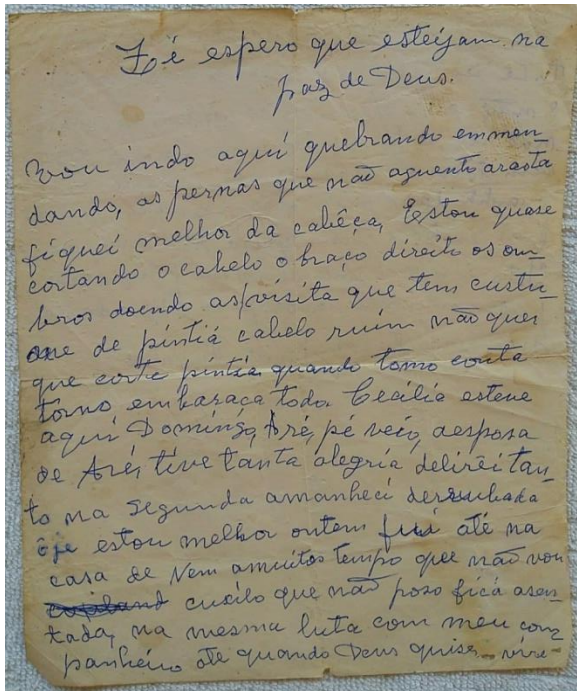 Zé espero que esteijam na
paz de Deus.
Vou indo aqui quebrando emmen_
dando, as pernas que não aguento arasta
fiquei melhor da cabêça, Estou quase
cortando o cabelo o braço direito os om_
bros doendo as visita que tem custu_
me de pintiá cabelo ruim não quer
que corte pintia quando tomo conta
torno embaraça todo Cecília esteve
aqui Domingo, Aré, pé veio, aesposa
de Aré, tive tanta alegria delirêi tan_
to na segunda amanheci derrubada
ôje estou melhor ontem fui até na
casa de Nem amuitos tempo que não vou
que não poso ficá asen_
tada, na mesma luta com meu com_
panheiro ate quando Deus quiser_ vire_